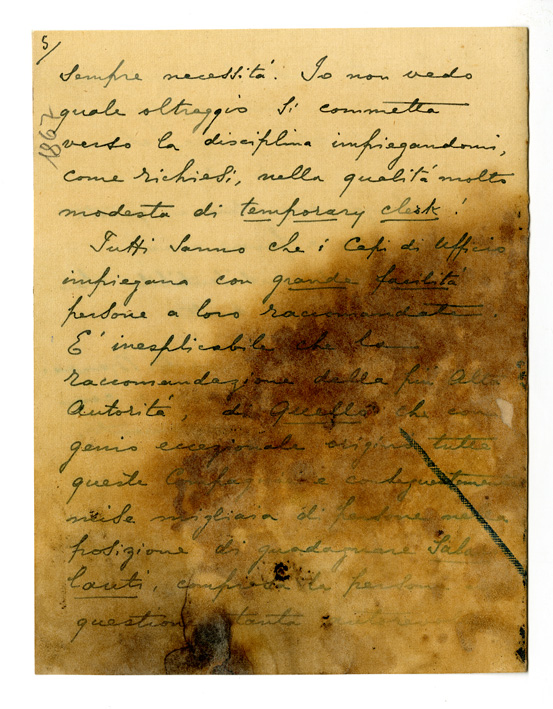 5/
1867
sempre necessitá. Io non vedo
quale oltraggio si commetta
verso la disciplina impiegandomi,
come richiesi, nella qualitá molto
modesta di temporary clerk!
Tutti sanno che i Capi di Ufficio
impiegano con grande facilitá
persone a loro raccomandate.
E' inesplicabile che la
raccomandazione dalla piú Alta
Autoritá, di Quello che con
genio eccezionale origino tutte
queste e conseguentemente
mise migliaia di persone nella
posizione di guadagnare
questione tanta